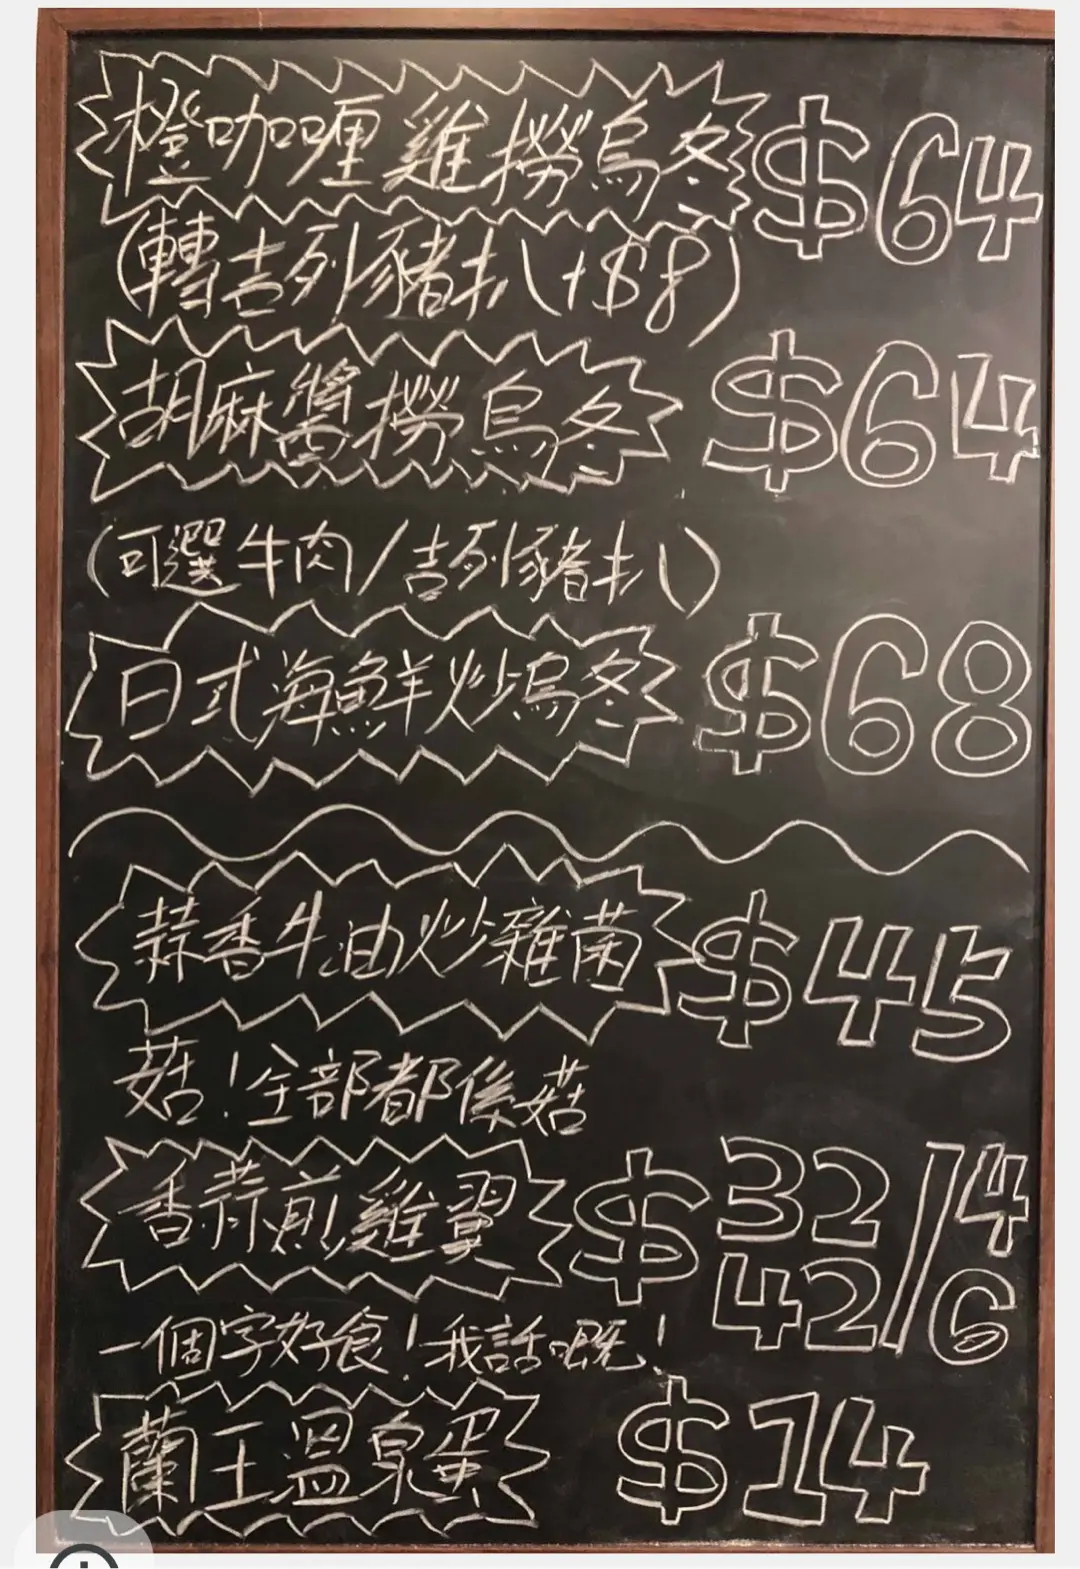 橙咖喱雞撈烏冬 $64
(轉吉列豬扒+$8)
胡麻醬撈烏冬 $64
(可選牛肉/吉列豬扒)
日式海鮮炒烏冬 $68
蒜香牛油炒雜菌 $45
菇!全部都係菇
香蒜煎雞翼 $32/4
42/6
一個字好食!我話嘅!
蘭王溫泉蛋 $14